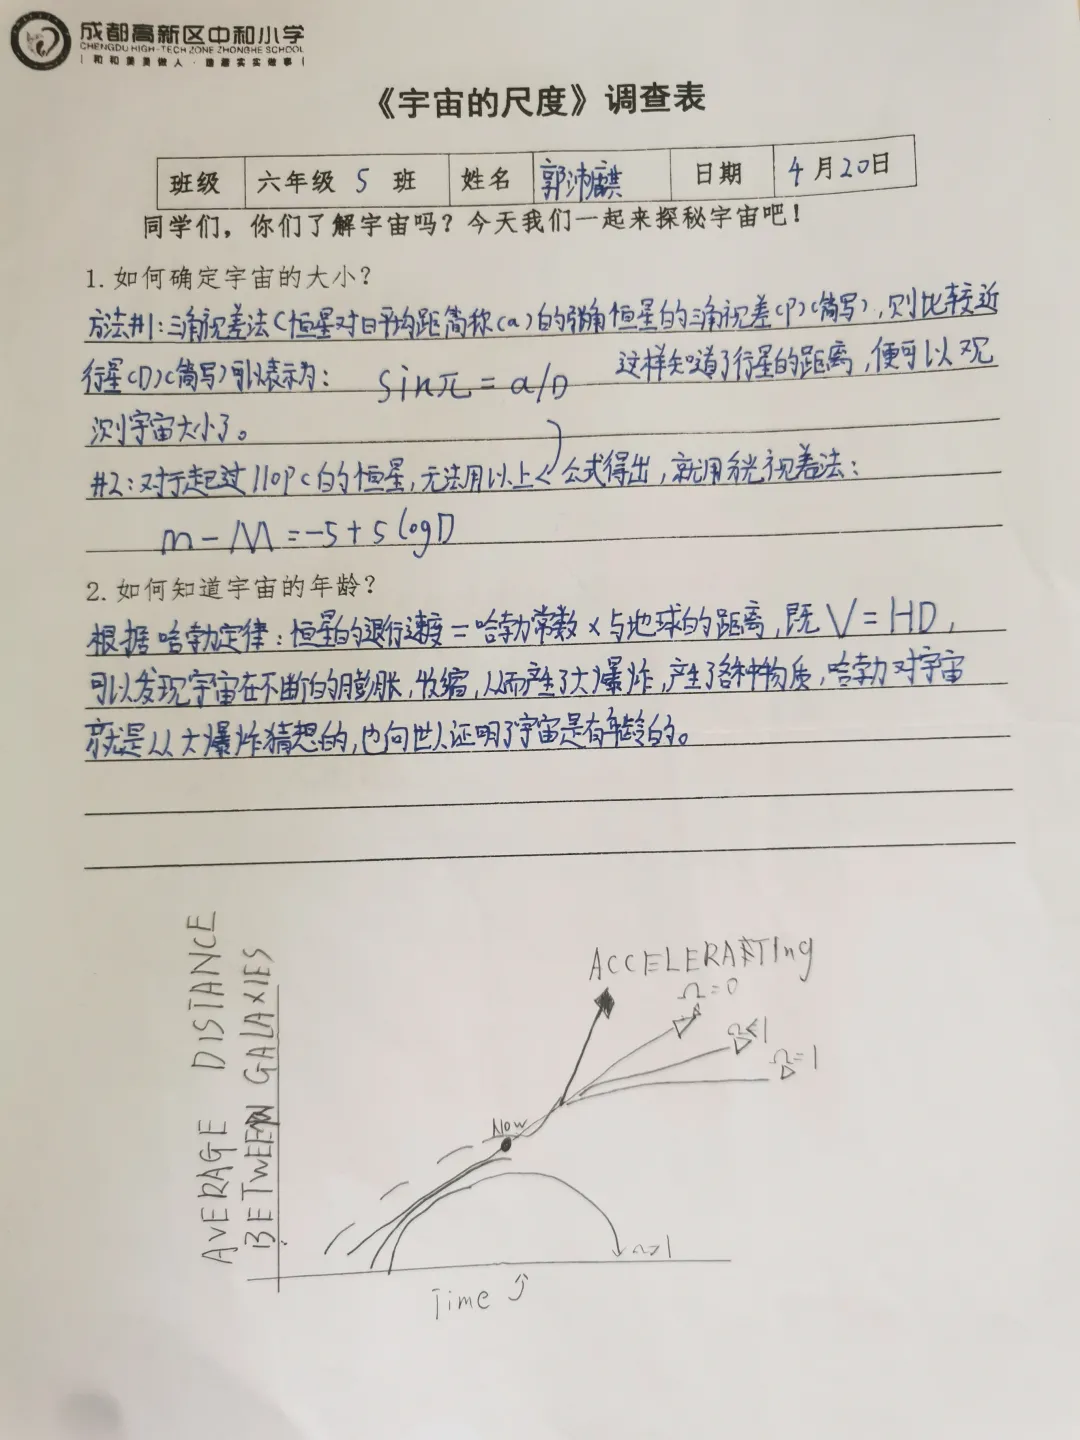 成都高新区中和小学
CHENGDU HIGH-TECH ZONE ZHONGHE SCHOOL
和和美美做人·踏踏实实做事
《宇宙的尺度》调查表
班级 六年级 5 班 姓名 郭沛麒 日期 4月20日
同学们，你们了解宇宙吗？今天我们一起来探秘宇宙吧！
1.如何确定宇宙的大小？
方法#1:三角视差法(恒星对日平均距简称(a)的张角恒星的三角视差(P)(简写),则比较近
行星(D)(简写)可以表示为: sinπ=a/D 这样知道了行星的距离,便可以观
测宇宙大小了。
#2:对于起过110pc的恒星,无法用以上<公式得出,就用分光视差法:
m-M=-5+5logD
2.如何知道宇宙的年龄？
根据哈勃定律:恒星的退行速度=哈勃常数×与地球的距离,既V=HD,
可以发现宇宙在不断的膨胀,收缩,从而产生了大爆炸,产生了各种物质,哈勃对宇宙
就是从大爆炸猜想的,也向世人证明了宇宙是有年龄的。
AVERAGE DISTANCE
BETWEEN GALAXIES
ACCELERATING
Ω=0
Ω<1
Ω=1
Now
Ω>1
Time